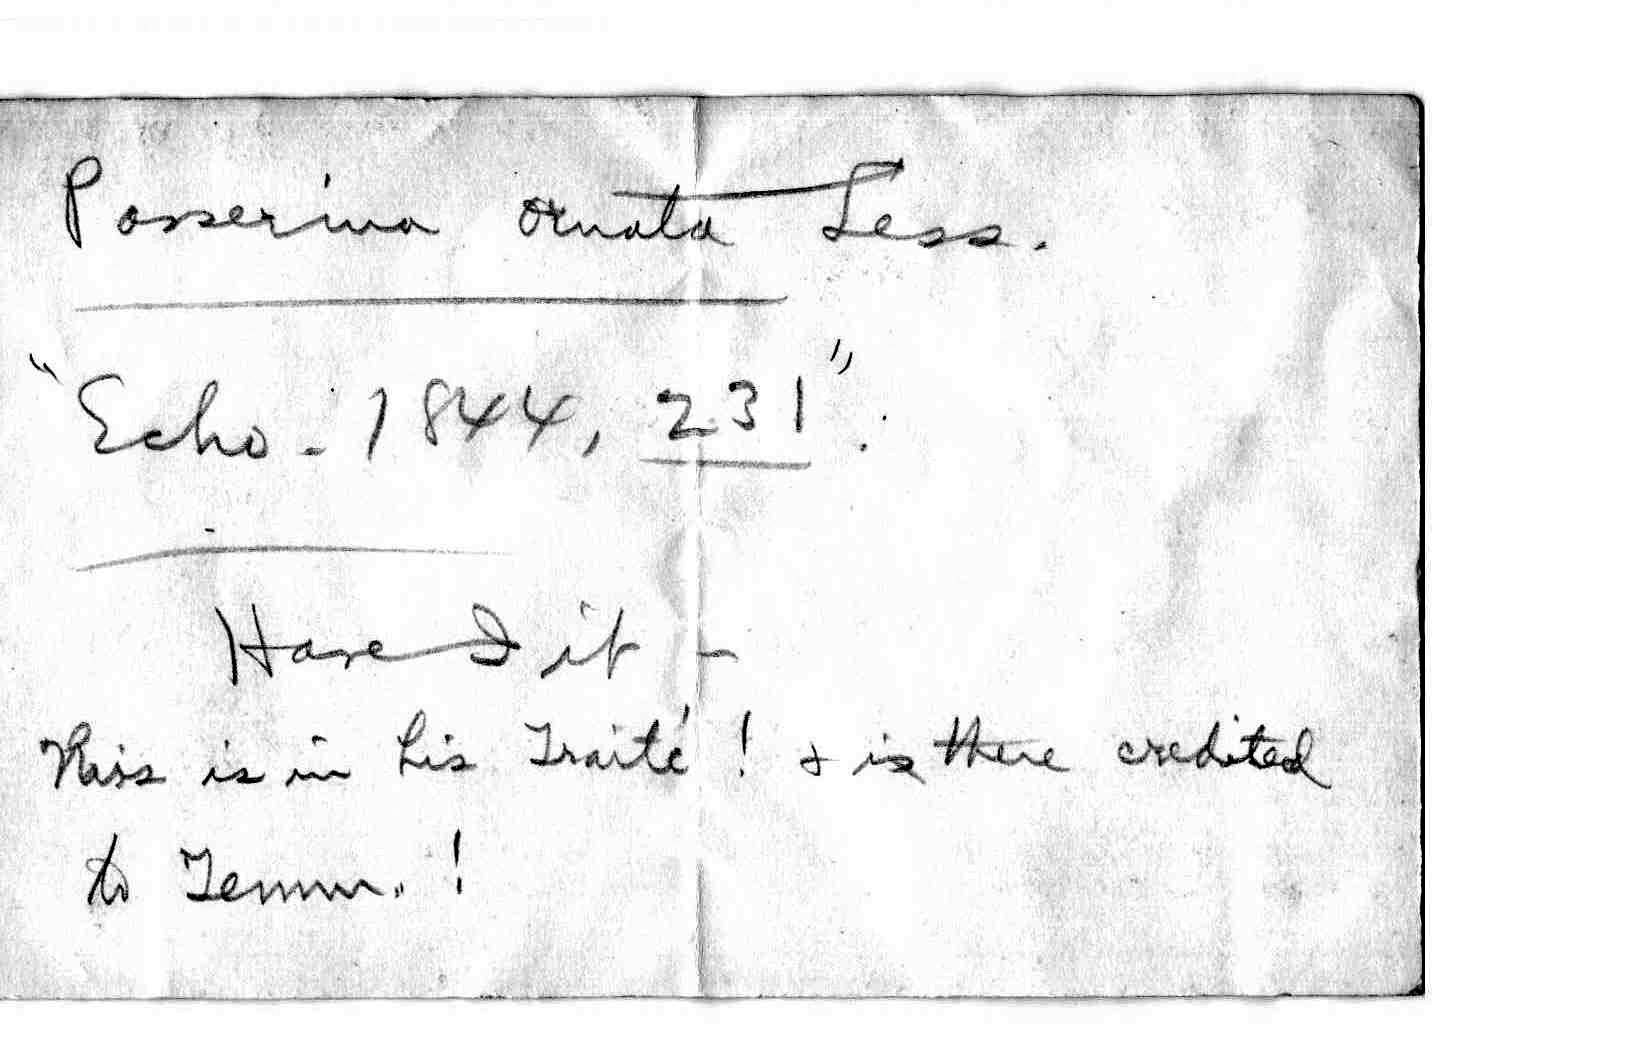 Passerina ornata Less.
"Echo. 1844, 231".
Have I it –
This is in his Traité! & is there credited
to Temm.!